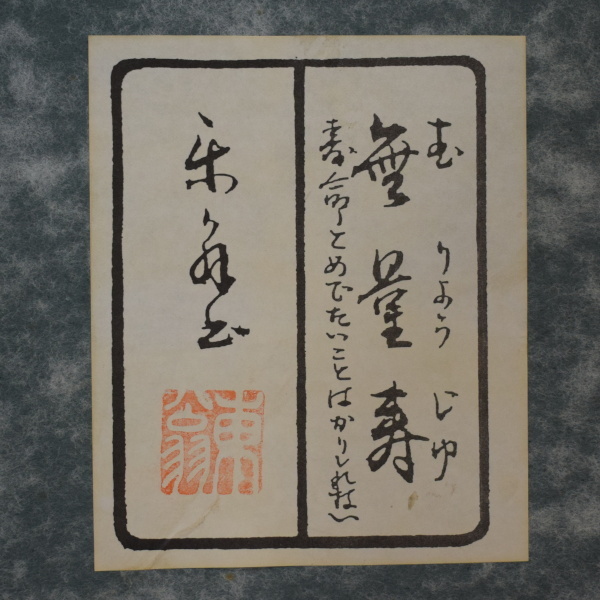 むりょうじゅ
無量寿
寿命とめでたいことはかりしれない
東
翁